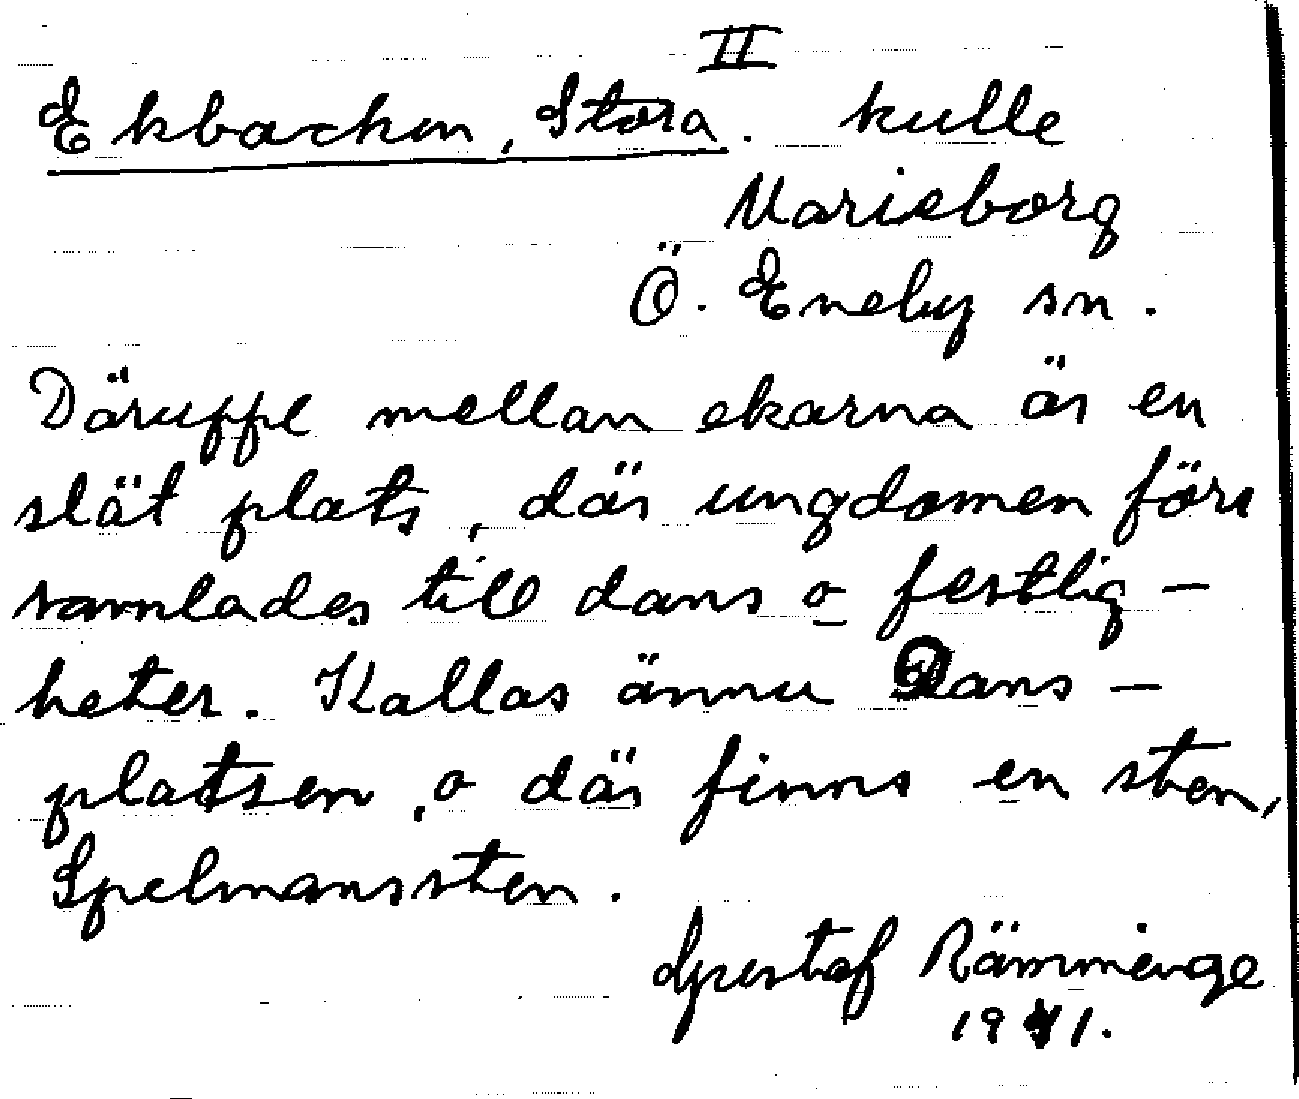 II
Ekbacken, Stora. kulle
Marieborg
Ö. Eneby sn.
Däruppe mellan ekarna är en
slät plats, där ungdomen förr
samlades till dans o festlig-
heter. Kallas ännu Dans-
platsen, o där finns en sten,
Spelmanssten.
Gustaf Rämminge
1941.